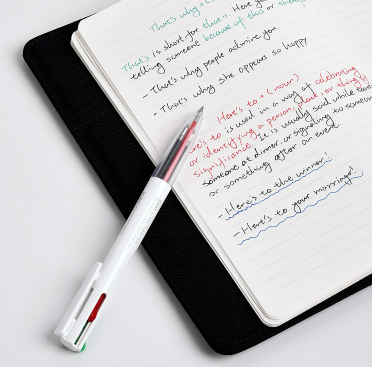 That's why + (
That's is short for that is. Here you
telling someone because of this or
- That's why people admire you
- That's why she appears so happy
Here's to + (noun)
Here's to is used in a way of celebrating
or identifying a person, place, or thing's
significance. It is usually said while
someone at dinner, or signaling to someone
or something after an event.
- Here's to the winner!
- Here's to your marriage!